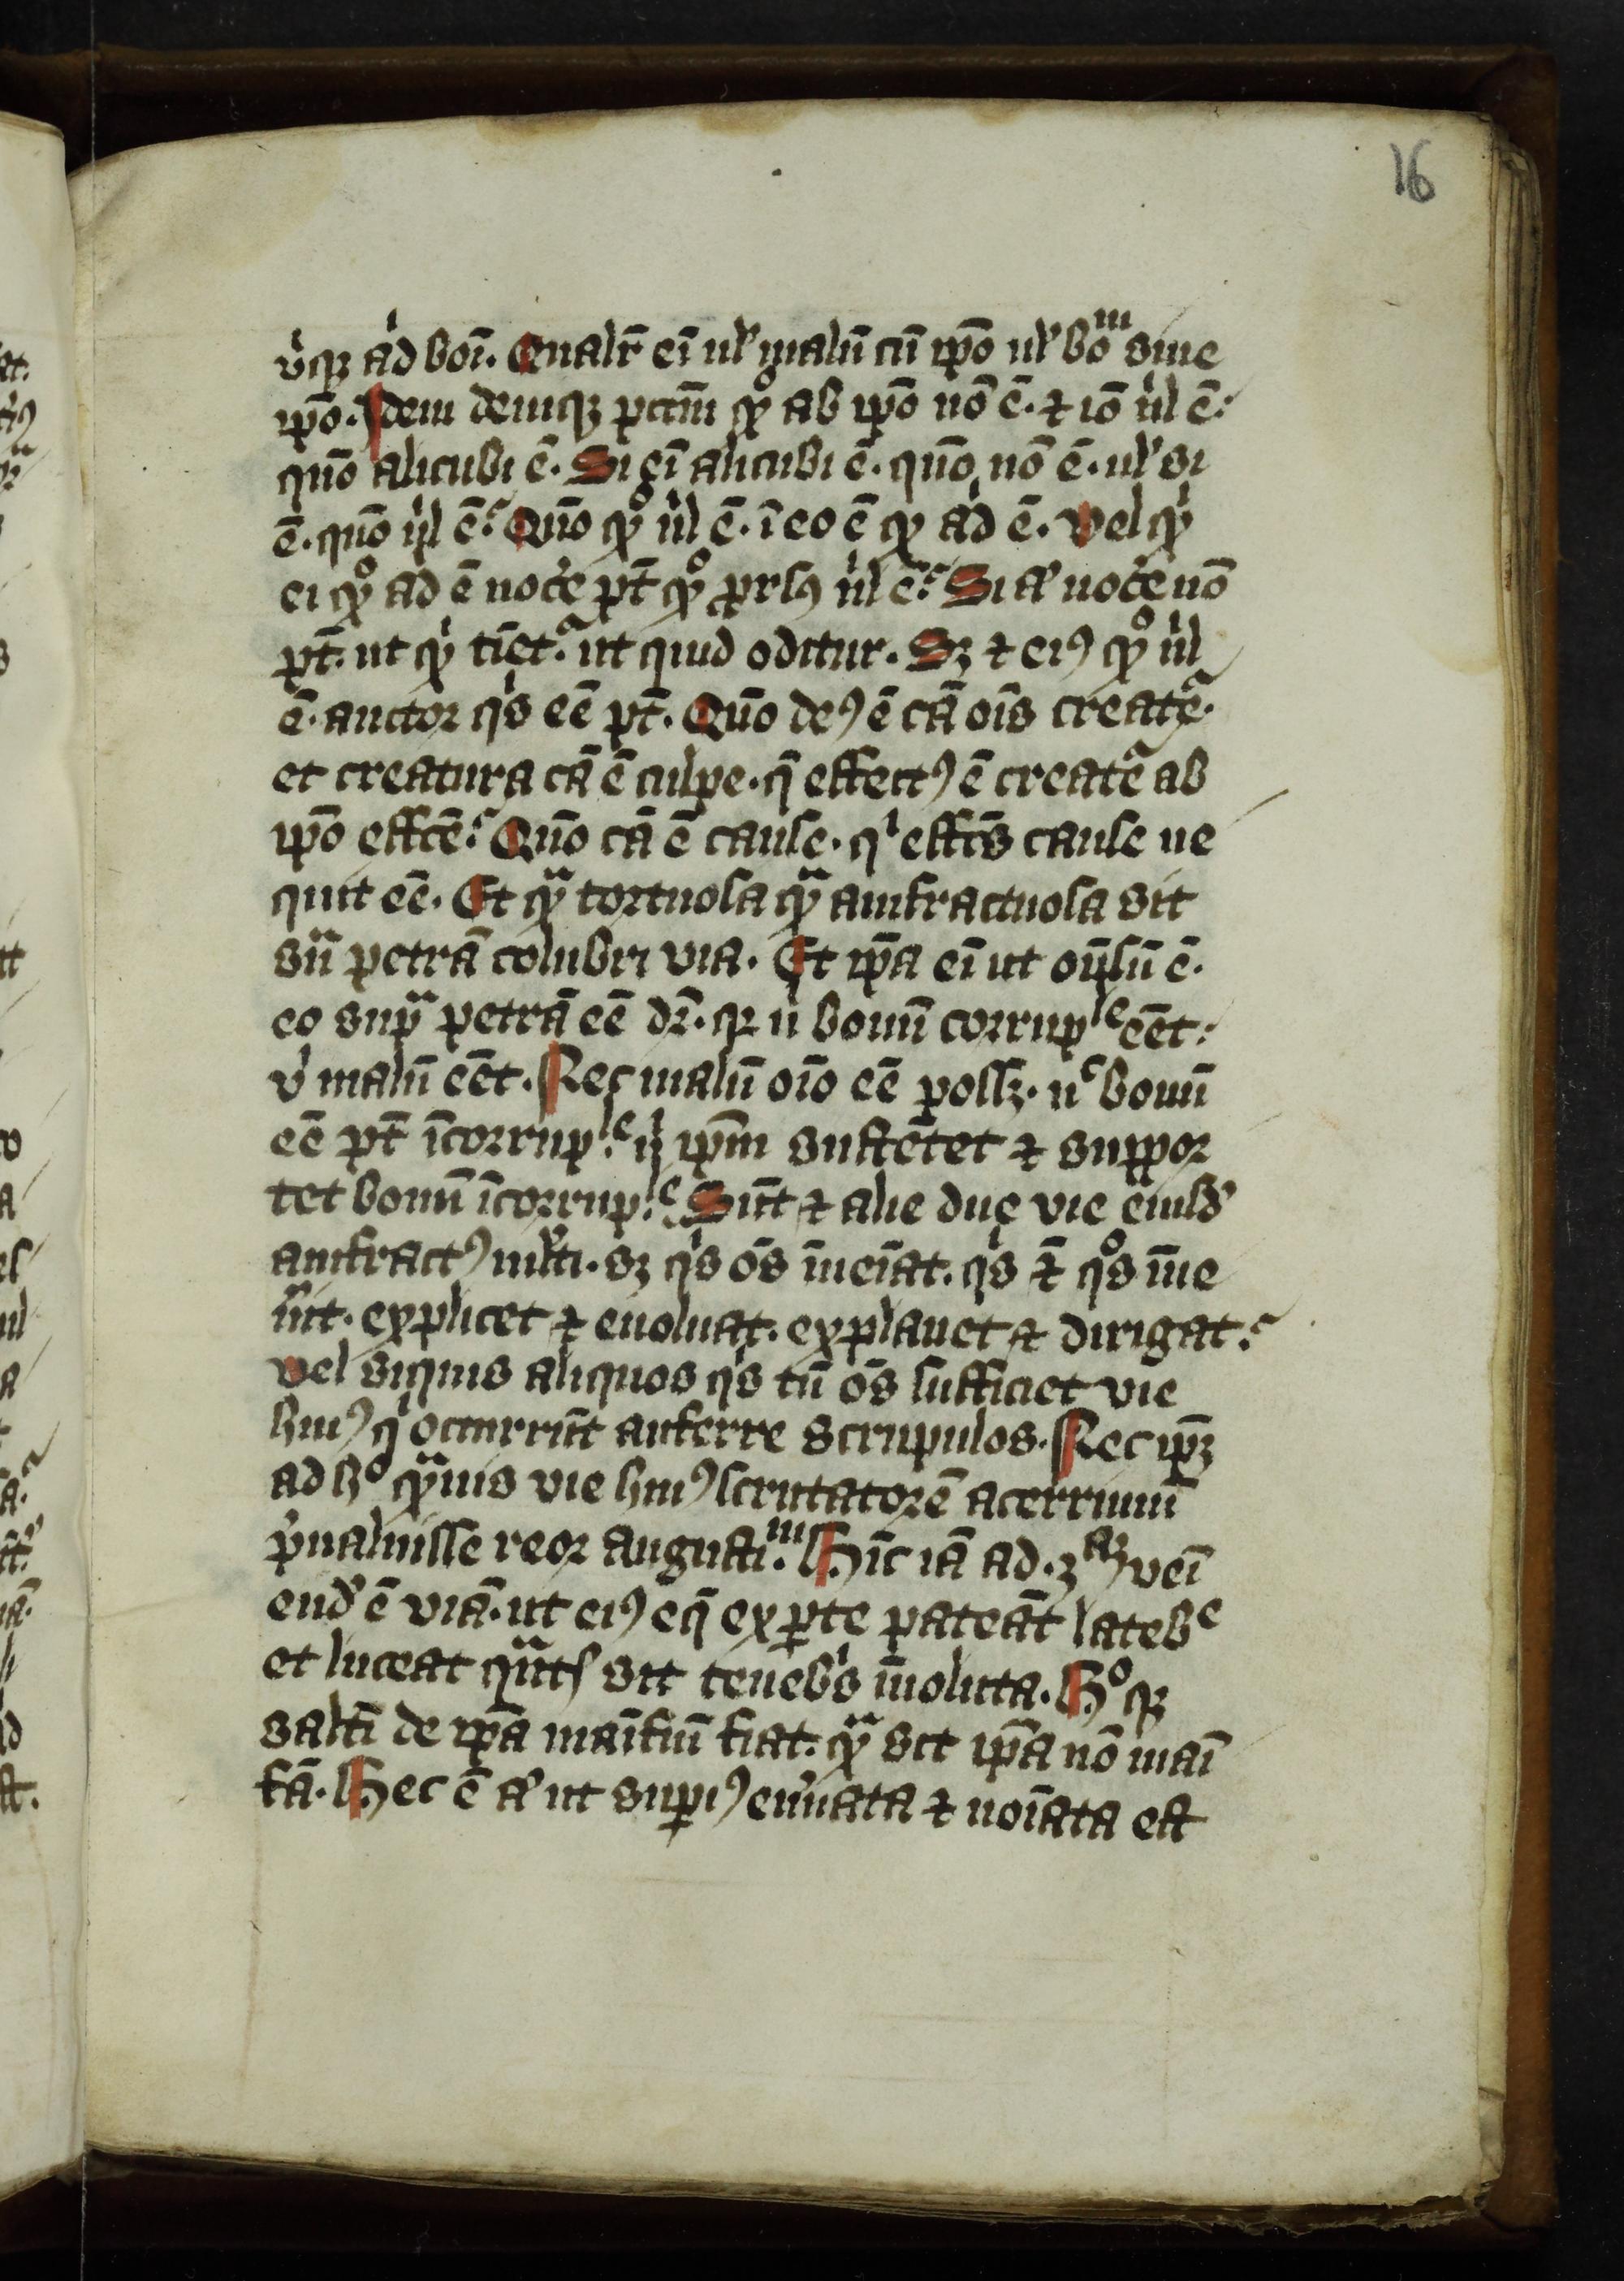 16
v̾qꝫ a̍d boī. Qualr̄ eī ul̾ malū cū ip̄o ul̾ bo᷑ᵐ sine
ip̄o. Idem deniqꝫ pccm̄ qͦ ab ip̄o nō ē. ⁊ iō nͥl ē.
quō alicubi ē. Si eī alicubi ē. quō nō ē. ul̾ si
ē. quō nͥl ē? Quō qͦ nͥl ē. ī eo ē qͦ a̍d ē. Vel qͥ
ei qͦ ad ē noce̾ pt̄ qͦ prorsꝰ nͥl ē? Si aͧ noce̾ nō
pt̄. ut qͥ tīetᷣ. ut quid oditur. Sꝫ ⁊ eiꝰ qͦ nͥl
ē. auctor qͥs eē pt̄. Quō deꝰ ē cā oīs creatᷓe.
et creatura cā ē culpe. q̄ effectꝰ ē creatᷓe ab
ip̄o effcē? Quō cā ē cause. qͥ effc̄s cause ne
quit eē. Et qᷓ tortuosa qᷓ amfractuosa sit
sᷓ petrā colubri via. Et ip̄a eī ut ōn̄sū ē.
eo supᷓ petrā eē dr̄. qꝛ n̍ bonū corrupˡᵉ eēt.
v̾ malū eēt. Nec malū oīo eē possꝫ. nͨ bonū
eē pt̄ īcorrupˡᵉ. nͥ ip̄m sustētet ⁊ suppor
tet bonū īcorrupˡᵉ. Sūt ⁊ alie due vie eiusd̾
amfractꝰ ml̾ti. sꝫ qͥs ōs īueīat. qͥs ⁊̄ qͦs īue
n̾it. explicet ⁊ euoluat. explanet ⁊ dirigat?
Vel siquis aliquos qͥs tn̄ ōs sufficiet vie
huiꝰ qͥ occurrūt auferre scrupulos. Nec ipꝫ
ad hͦ qᷓuis vie huiꝰ scrutatorē acerrimū
p̾ualuisse reor augustiᵐ. Hīc iā ad .3.ᵃᵐ veī
end̾ ē viā. ut eiꝰ eq̄ ex ꝑte pateāt latebᷓe
et luceat qᷓntꝭ sit tenebͥs īuoluta. Hͦ qꝫ
saltī de ip̄a maīfm̄ fiat. qᷓ sit ip̄a nō maī
fā. Hec ē aͧ ut supiꝰ enu̾ata ⁊ noīata est